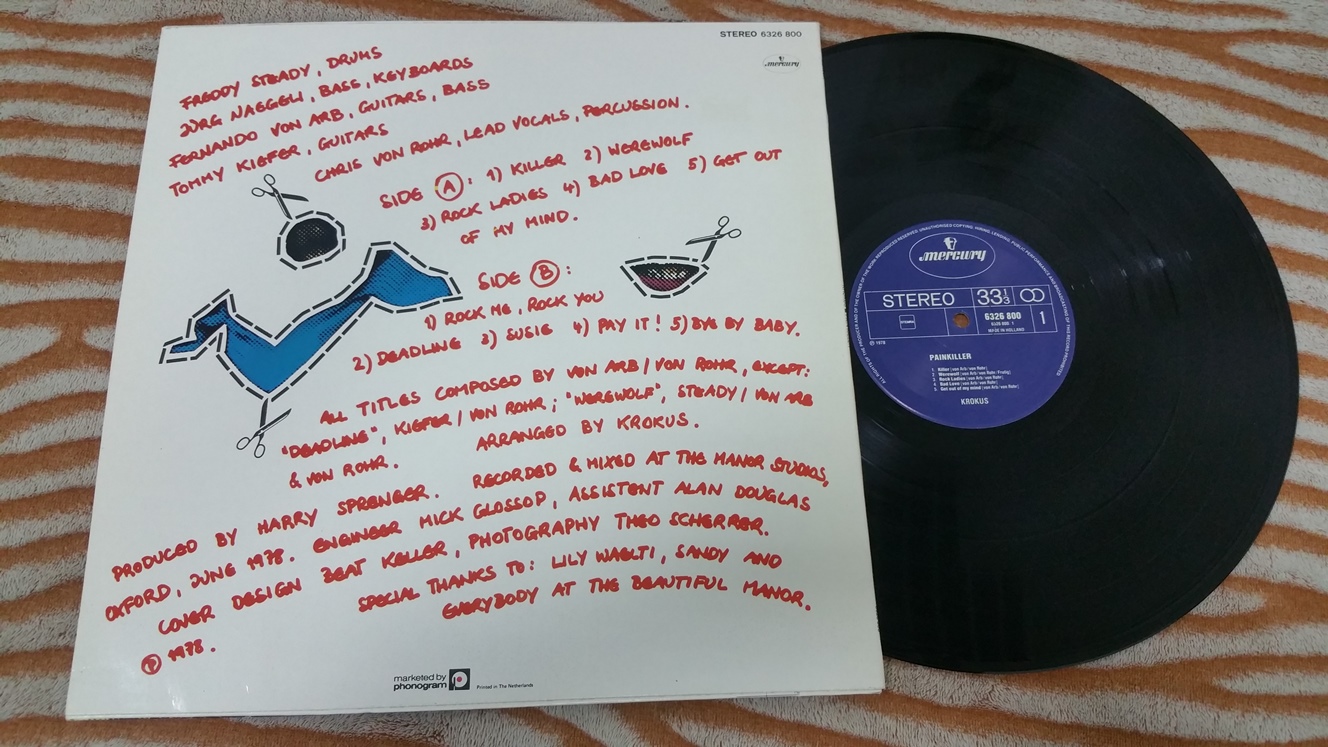 STEREO 6326 800
mercury
FREDDY STEADY, DRUMS
JÜRG NAEGELI, BASS, KEYBOARDS
FERNANDO VON ARB, GUITARS, BASS
TOMMY KIEFER, GUITARS
CHRIS VON ROHR, LEAD VOCALS, PERCUSSION.
SIDE A: 1) KILLER 2) WEREWOLF
3) ROCK LADIES 4) BAD LOVE 5) GET OUT
OF MY MIND.
SIDE B:
1) ROCK ME, ROCK YOU
2) DEADLINE 3) SUSIE 4) PAY IT! 5) BYE BY BABY.
ALL TITLES COMPOSED BY VON ARB / VON ROHR, EXCEPT:
"DEADLINE", KIEFER / VON ROHR; "WEREWOLF", STEADY / VON ARB
& VON ROHR. ARRANGED BY KROKUS.
PRODUCED BY HARRY SPRENGER. RECORDED & MIXED AT THE MANOR STUDIOS,
OXFORD, JUNE 1978. ENGINEER MICK GLOSSOP, ASSISTENT ALAN DOUGLAS
COVER DESIGN BEAT KELLER, PHOTOGRAPHY THEO SCHERRER.
SPECIAL THANKS TO: LILY WAELTI, SANDY AND
EVERYBODY AT THE BEAUTIFUL MANOR.
℗ 1978.
marketed by
phonogram
Printed in The Netherlands
mercury
STEREO
33 1/3
6326 800
1
MADE IN HOLLAND
℗ 1978
PAINKILLER
1. Killer (von Arb/von Rohr)
2. Werewolf (von Arb/von Rohr/Frutig)
3. Rock Ladies (von Arb/von Rohr)
4. Bad Love (von Arb/von Rohr)
5. Get out of my mind (von Arb/von Rohr)
KROKUS